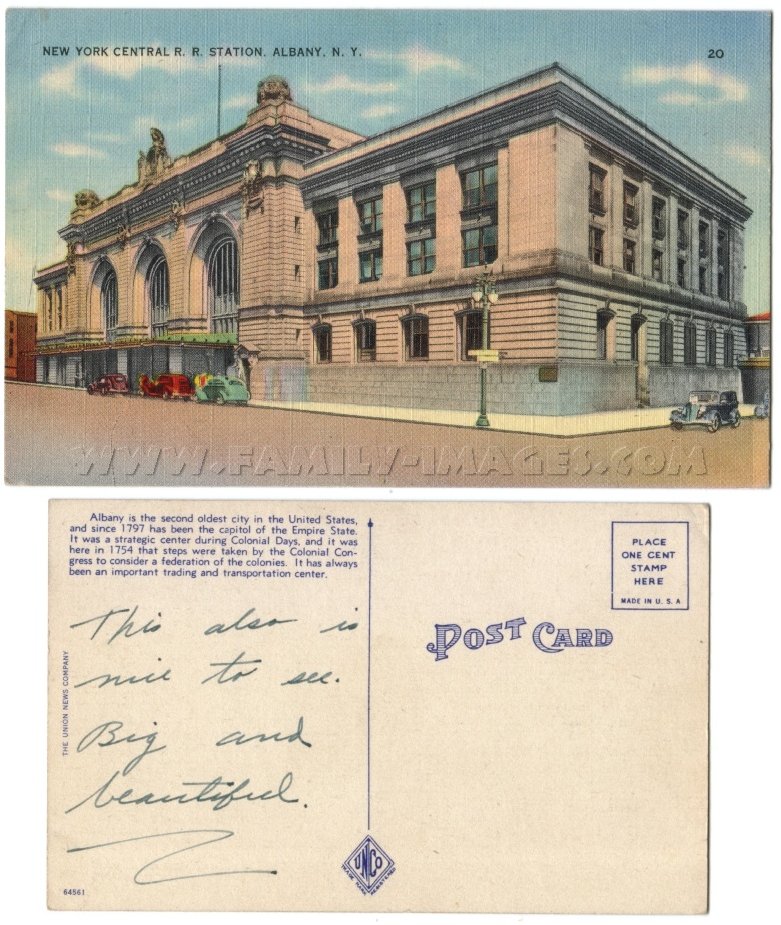 NEW YORK CENTRAL R. R. STATION, ALBANY, N. Y.
20
WWW.FAMILY-IMAGES.COM
Albany is the second oldest city in the United States,
and since 1797 has been the capitol of the Empire State.
It was a strategic center during Colonial Days, and it was
here in 1754 that steps were taken by the Colonial Con-
gress to consider a federation of the colonies. It has always
been an important trading and transportation center.
PLACE
ONE CENT
STAMP
HERE
MADE IN U. S. A
POST CARD
This also is
nice to see.
Big and
beautiful.
THE UNION NEWS COMPANY
UNCO
TRADE MARK
REGISTERED
64561